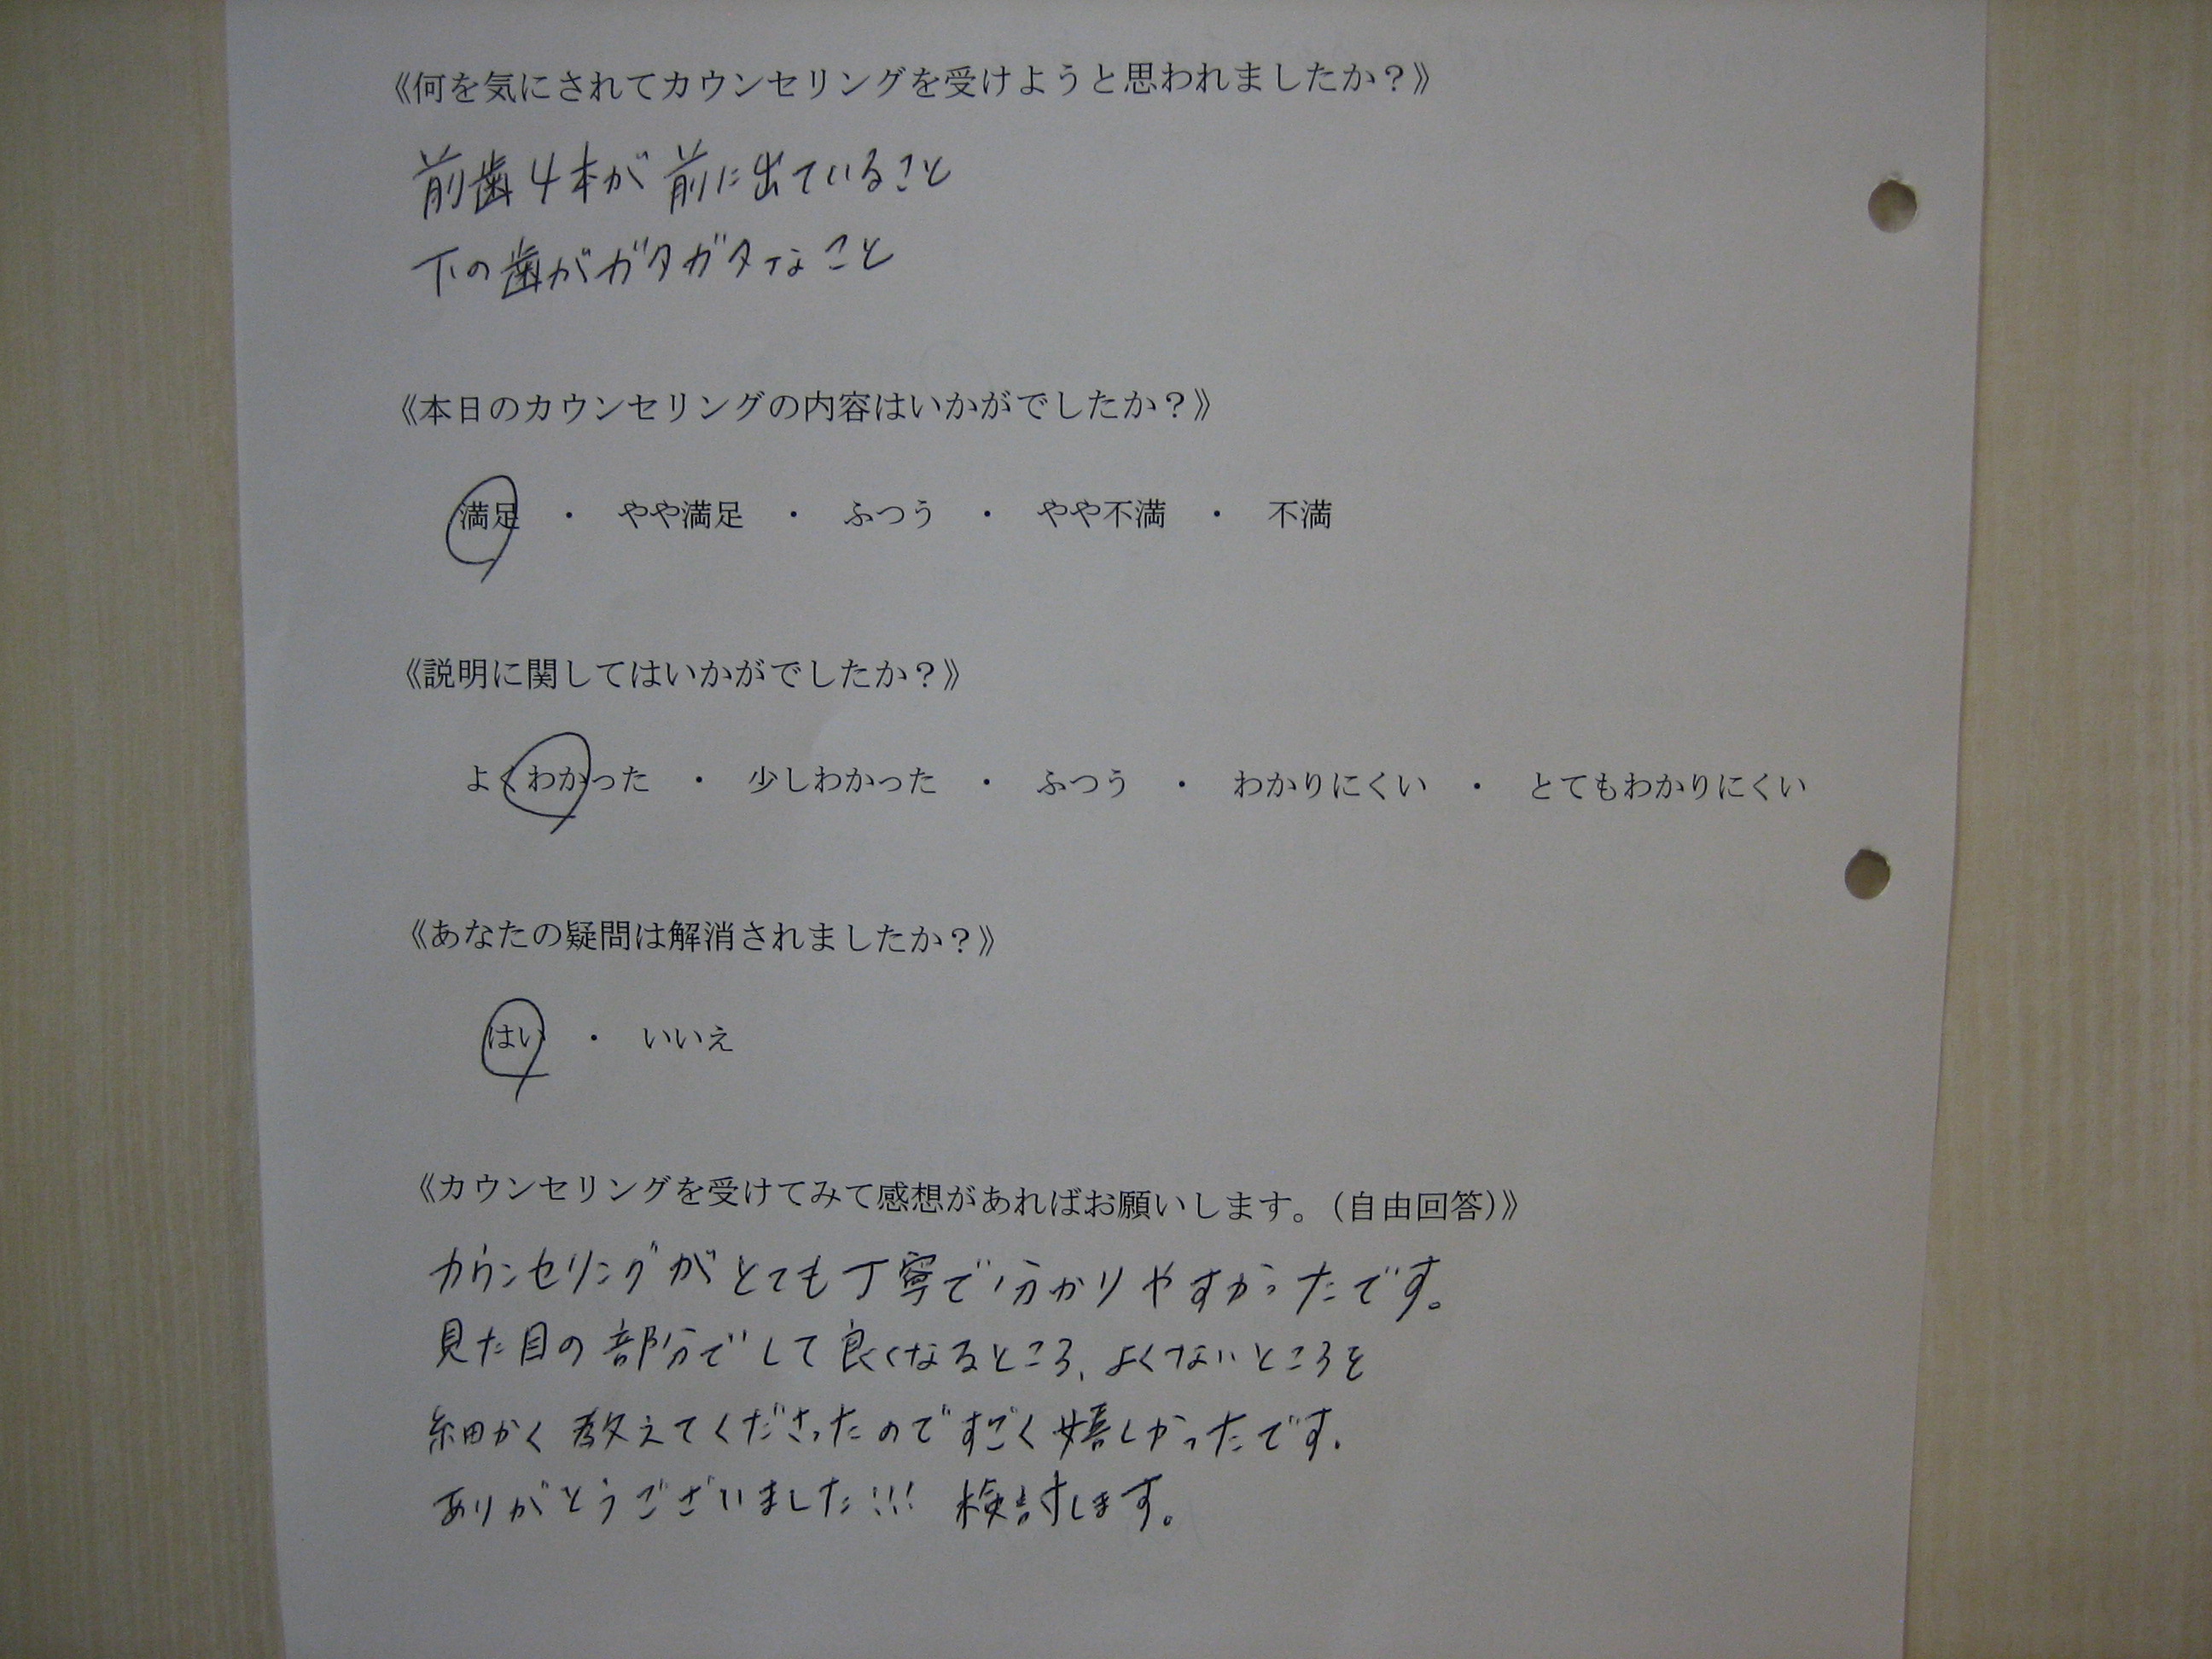 《何を気にされてカウンセリングを受けようと思われましたか？》
前歯4本が前に出ていること
下の歯がガタガタなこと
《本日のカウンセリングの内容はいかがでしたか？》
満足 ・ やや満足 ・ ふつう ・ やや不満 ・ 不満
《説明に関してはいかがでしたか？》
よくわかった ・ 少しわかった ・ ふつう ・ わかりにくい ・ とてもわかりにくい
《あなたの疑問は解消されましたか？》
はい ・ いいえ
《カウンセリングを受けてみて感想があればお願いします。（自由回答）》
カウンセリングがとても丁寧で分かりやすかったです。
見た目の部分でして良くなるところ、よくないところを
細かく教えてくださったのですごく嬉しかったです。
ありがとうございました!!! 検討します。